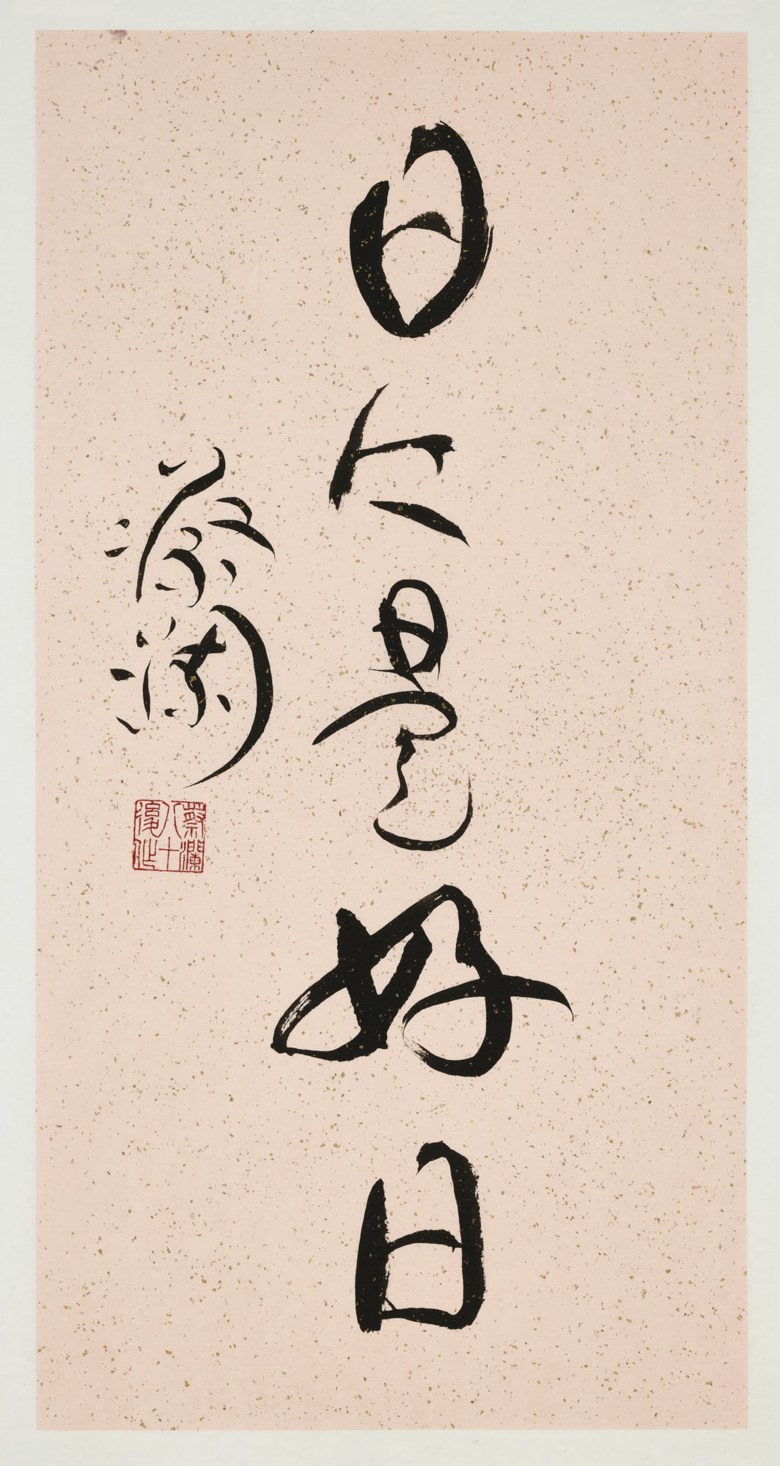 日日是好日
蔡瀾
蔡瀾八十後作